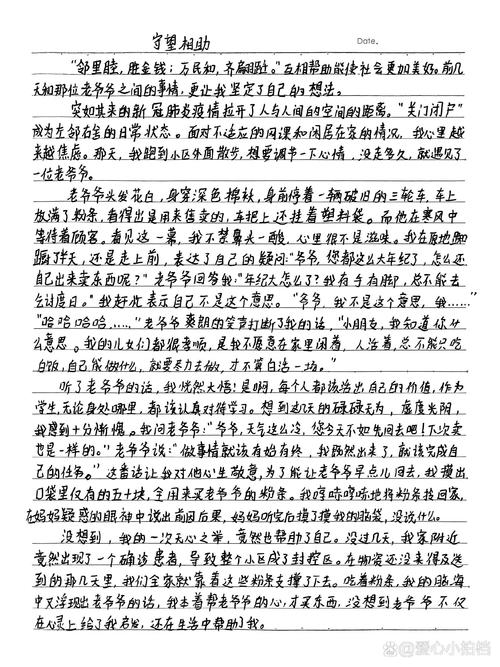 守望相助
Date.
"邻里睦，胜金钱；万民和，齐翩跹。"互相帮助能使社会更加美好。前几
天和那位老爷爷之间的事情，更让我坚定了自己的想法。
突如其来的新冠肺炎疫情拉开了人与人间的空间的距离。"关门闭户"
成为左邻右舍的日常状态。面对不适应的网课和闲居在家的情况，我心里越
来越焦虑。那天，我跑到小区外面散步，想要调节一下心情，没走多久，就遇见了
一位老爷爷。
老爷爷头发花白，身穿深色棉袄，身前停着一辆破旧的三轮车，车上
放满了粉条，看得出是用来售卖的，车把上还挂着塑料袋。而他在寒风中
等待着顾客。看见这一幕，我不禁鼻头一酸，心里很不是滋味。我在原地踟
蹰了半天，还是走上前，表达了自己的疑问："爷爷，您都这么大年纪了，怎么还
自己出来卖东西呢？"老爷爷回答我："年纪大怎么了？我有手有脚，总不能去
乞讨度日。"我赶忙表示自己不是这个意思。"爷爷，我不是这个意思，我……"
"哈哈哈哈……"老爷爷爽朗的笑声打断了我的话，"小朋友，我知道你什
么意思。我的儿女们都很孝顺，是我不愿意在家里闲着，人活着，总不能只吃
白饭，自己能做什么，就要尽力去做，才不算白活一场。"
听了老爷爷的话，我恍然大悟！是啊，每个人都该活出自己的价值，作为
学生，无论身处哪里，都该认真对待学习。想到这几天的碌碌无为，虚度光阴，
我感到十分惭愧。我问老爷爷："爷爷，天气这么冷，您今天不如先回去吧！下次卖
也是一样的。"老爷爷说："做事情就该有始有终，我既然出来了，就该完成自
己的任务。"这番话让我对他心生敬意，为了能让老爷爷早点儿回去，我摸出
口袋里仅有的五十块，全用来买老爷爷的粉条。我哼哧哼哧地将粉条拉回家，
在妈妈疑惑的眼神中说出前因后果，妈妈听完后摸了摸我的脑袋，没说什么。
没想到，我的一次无心之举，竟然也帮助了自己。没过几天，我家附近
竟然出现了一个确诊患者，导致整个小区成了封控区。在物资还没来得及送
到的那几天里，我们全家就靠着这些粉条支撑了下去。吃着粉条，我的脑海
中又浮现出老爷爷的话，我本着帮老爷爷的心，才买东西，没想到老爷爷不仅
在心灵上给了我启发，还在生活中帮助了我。
爱心小拍档